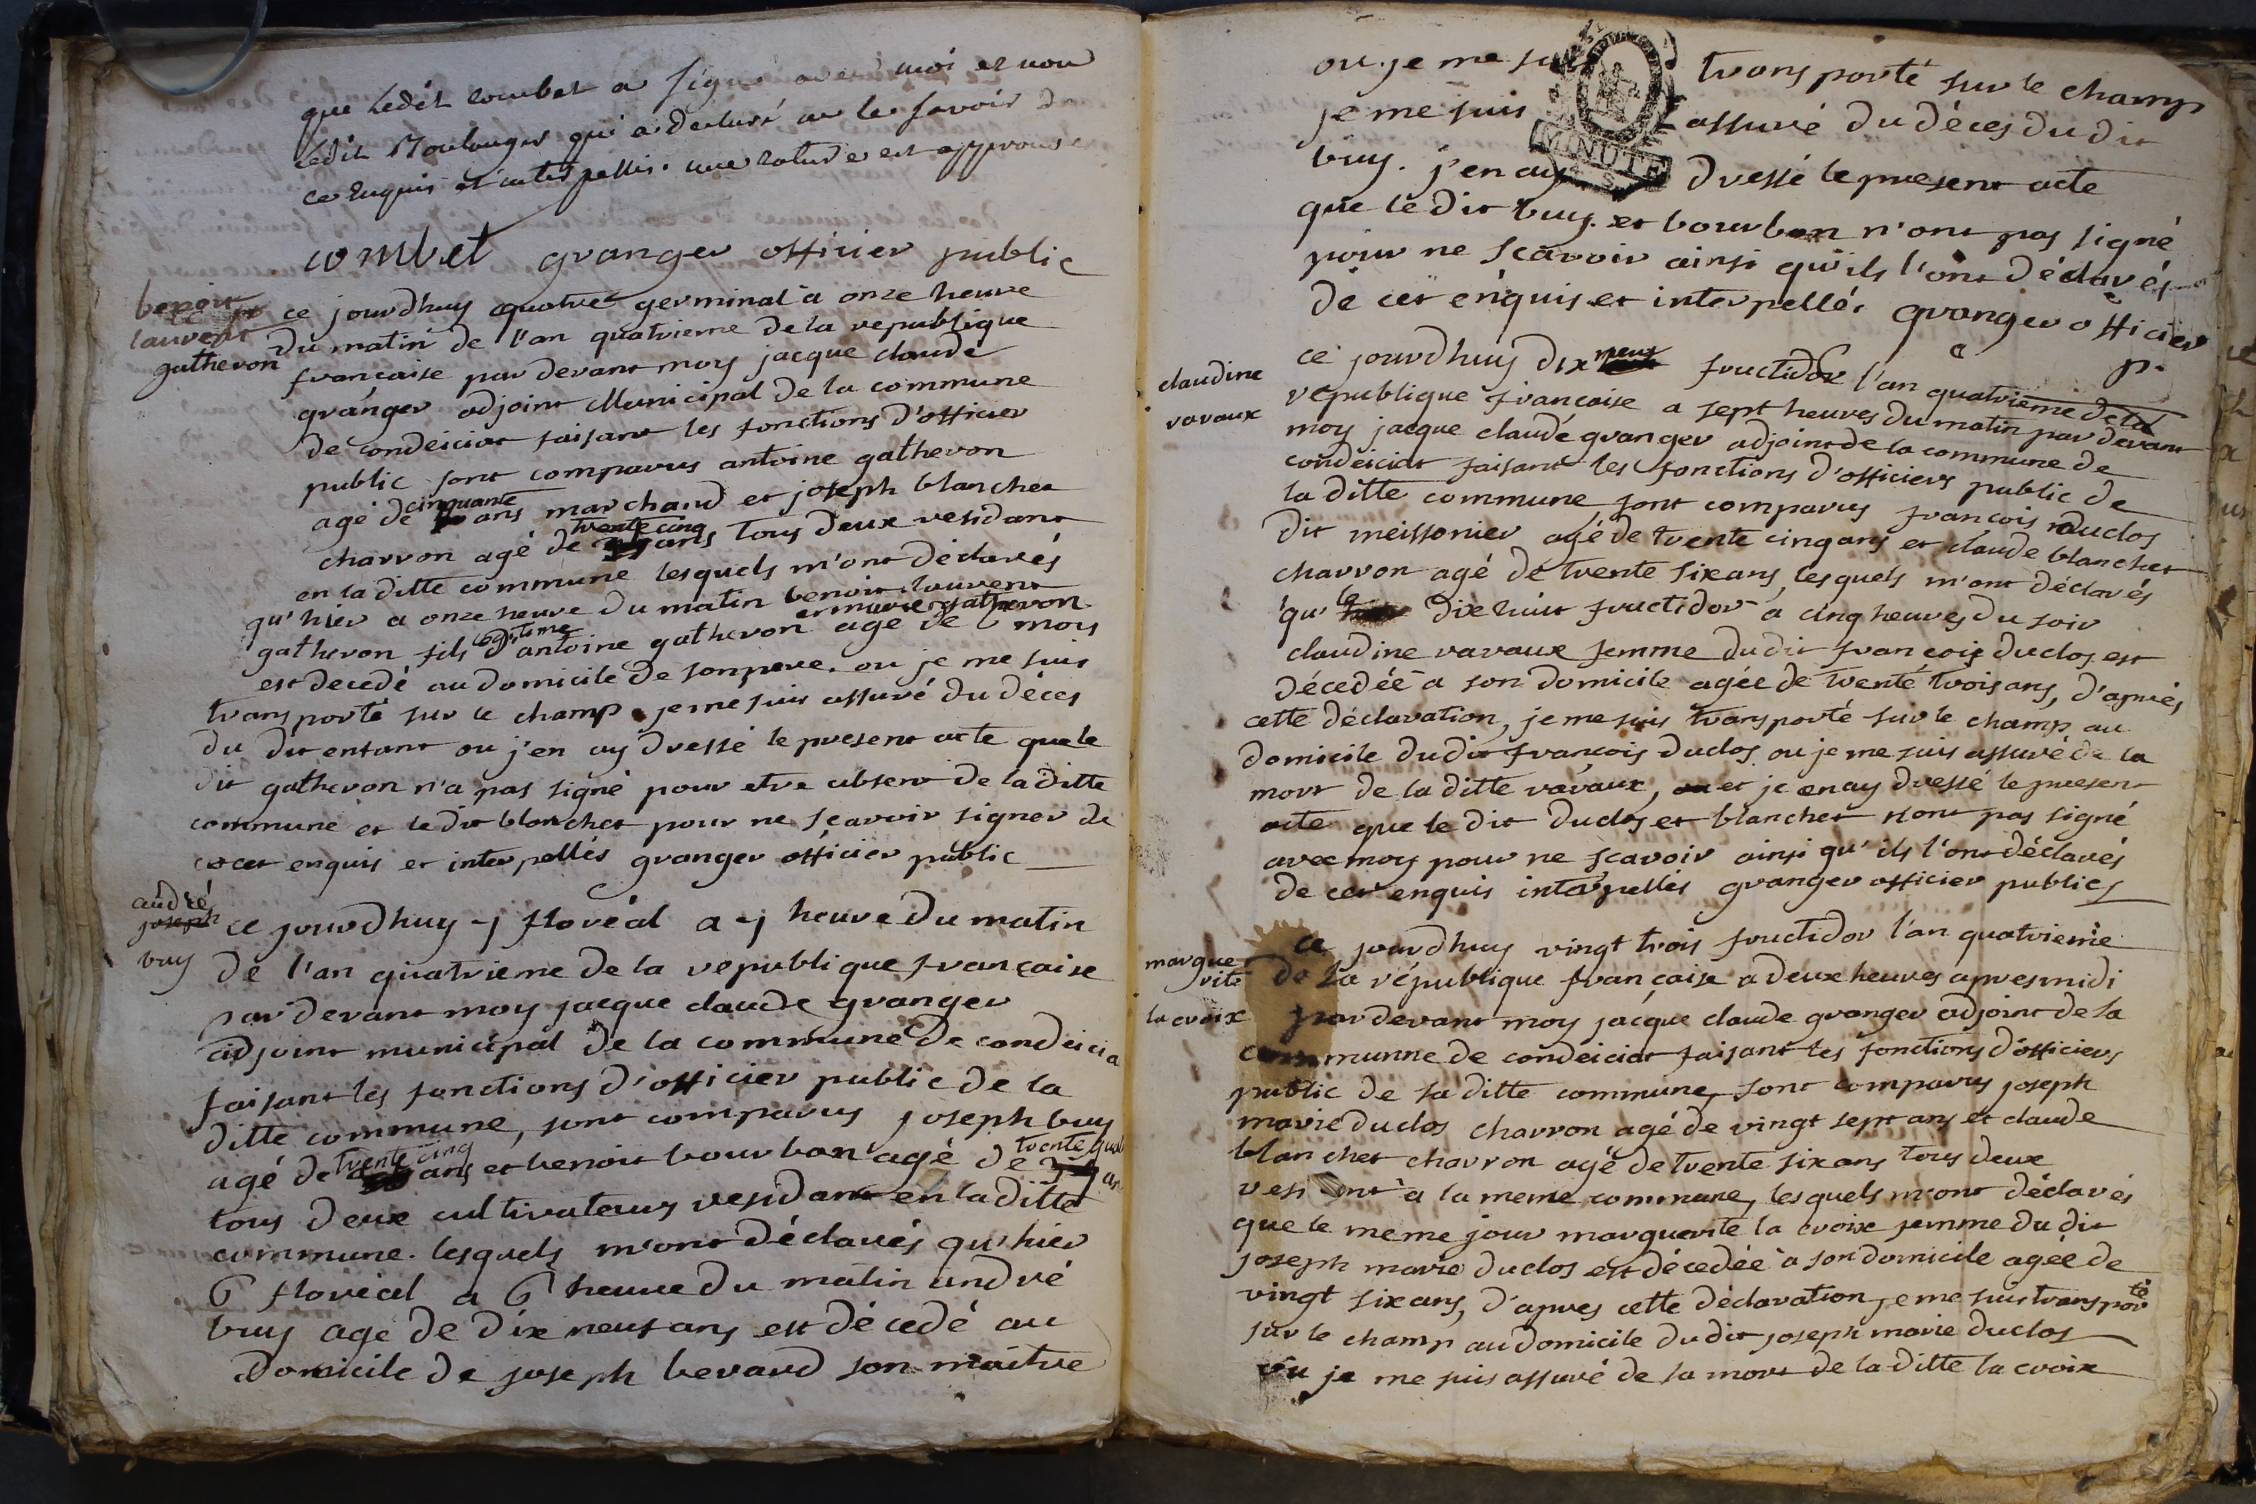 que ledit combet a signé avec moi et non
ledit Moulonger qui a déclaré ne le savoir de
ce Enquis et interpellés. une rature est approuvé
combet granger officier public
benoit
laurent
gathevon
ce jourdhuy quatre germinal a onze heure
du matin de l'an quatrieme de la republique
francaise par devant moy jacque claude
granger adjoint Municipal de la commune
de condeiciat faisant les fonctions d'officier
public sont comparus antoine gathevon
agé de cinquante ans marchand et joseph blanchet
charron agé de trente cinq ans tous deux residant
en la ditte commune lesquels m'ont déclarés
qu'hier a onze heure du matin benoit laurent
gathevon fils légitime d'antoine gathevon et marie gathevon agé de 6 mois
est decedé au domicile de son pere. ou je me suis
transporté sur le champ je me suis assuré du déces
du dit enfant ou j'en ay dressé le present acte que le
dit gathevon n'a pas signé pour etre absent de la ditte
commune et le dit blanchet pour ne scavoir signer de
ce cet enquis et interpellés granger officier public
andré
joseph
buy
ce jourdhuy 7 floréal a 7 heure du matin
de l'an quatrieme de la republique française
par devant moy jacque claude granger
adjoint municipal de la commune de condeicia
faisant les fonctions d'officier public de la
ditte commune, sont comparus joseph buy
agé de trente cinq ans et benoit bourbon agé de trente quat an
tous deux cultivateurs residant en la ditte
commune. lesquels m'ont déclarés qu'hier
6 floréal a 6 heure du matin andré
buy agé de dix neuf ans est décedé au
domicile de joseph bevard son maitre
ou je me suis transporté sur le champ
je me suis assuré du déces du dit
buy. j'en ay dressé le present acte
MINUTE
que le dit buy. et bourbon n'ont pas signé
pour ne scavoir ainsi qu'ils l'ont déclarés
de cet enquis et interpellés granger officier
p.
claudine
ravaux
ce jourdhuy dix neuf fructidor l'an quatrieme de la
republique francaise a sept heures du matin par devant
moy jacque claude granger adjoint de la commune de
condeiciat faisant les fonctions d'officiers public de
la ditte commune sont comparus francois duclos
dit meissonier agé de trente cinq ans et claude blanchet
charron agé de trente six ans, lesquels m'ont déclarés
qu' le dix huit fructidor a cinq heures du soir
claudine ravaux femme du dit francois duclos est
décedée a son domicile agée de trente trois ans, d'apres
cette déclaration, je me suis transporté sur le champ au
domicile du dit francois duclos ou je me suis assuré de la
mort de la ditte ravaux, et je en ay dressé le present
acte que le dit duclos et blanchet n'ont pas signé
avec moy pour ne scavoir ainsi qu'ils l'ont déclarés
de cet enquis interpellés granger officier public
margue
rite
la croix
ce jourdhuy vingt trois fructidor l'an quatrieme
de la république française a deux heures apres midi
par devant moy jacque claude granger adjoint de la
communne de condeiciat faisant les fonctions d'officiers
public de la ditte commune, sont comparus joseph
marie duclos charron agé de vingt sept ans et claude
blanchet charron agé de trente six ans tous deux
resi ant a la meme commune, lesquels m'ont déclarés
que le meme jour marguerite la croix femme du dit
joseph marie duclos est décedée a son domicile agée de
vingt six ans, d'apres cette déclaration je me suis transporté
sur le champ au domicile du dit joseph marie duclos
ou je me suis assuré de la mort de la ditte la croix